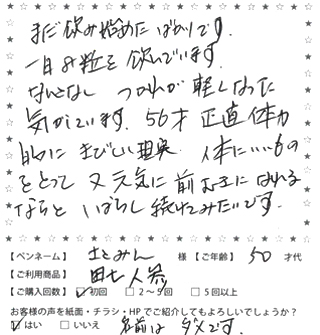 まだ飲み始めたばかりです。
一日8粒を飲んでいます。
なんとなし つかれが軽くなった
気がしています。56才 正直体力
的にきびしい現実 体にいいもの
をとって 又元気に前むきになれる
ならと しばらく続けてみたいです。
【ペンネーム】 さとみん 様 【ご年齢】 50 才代
【ご利用商品】 田七人参
【ご購入回数】 ☑初回 □2～5回 □5回以上
お客様の声を紙面・チラシ・HPでご紹介してもよろしいでしょうか?
☑はい □いいえ 名前は ダメです。